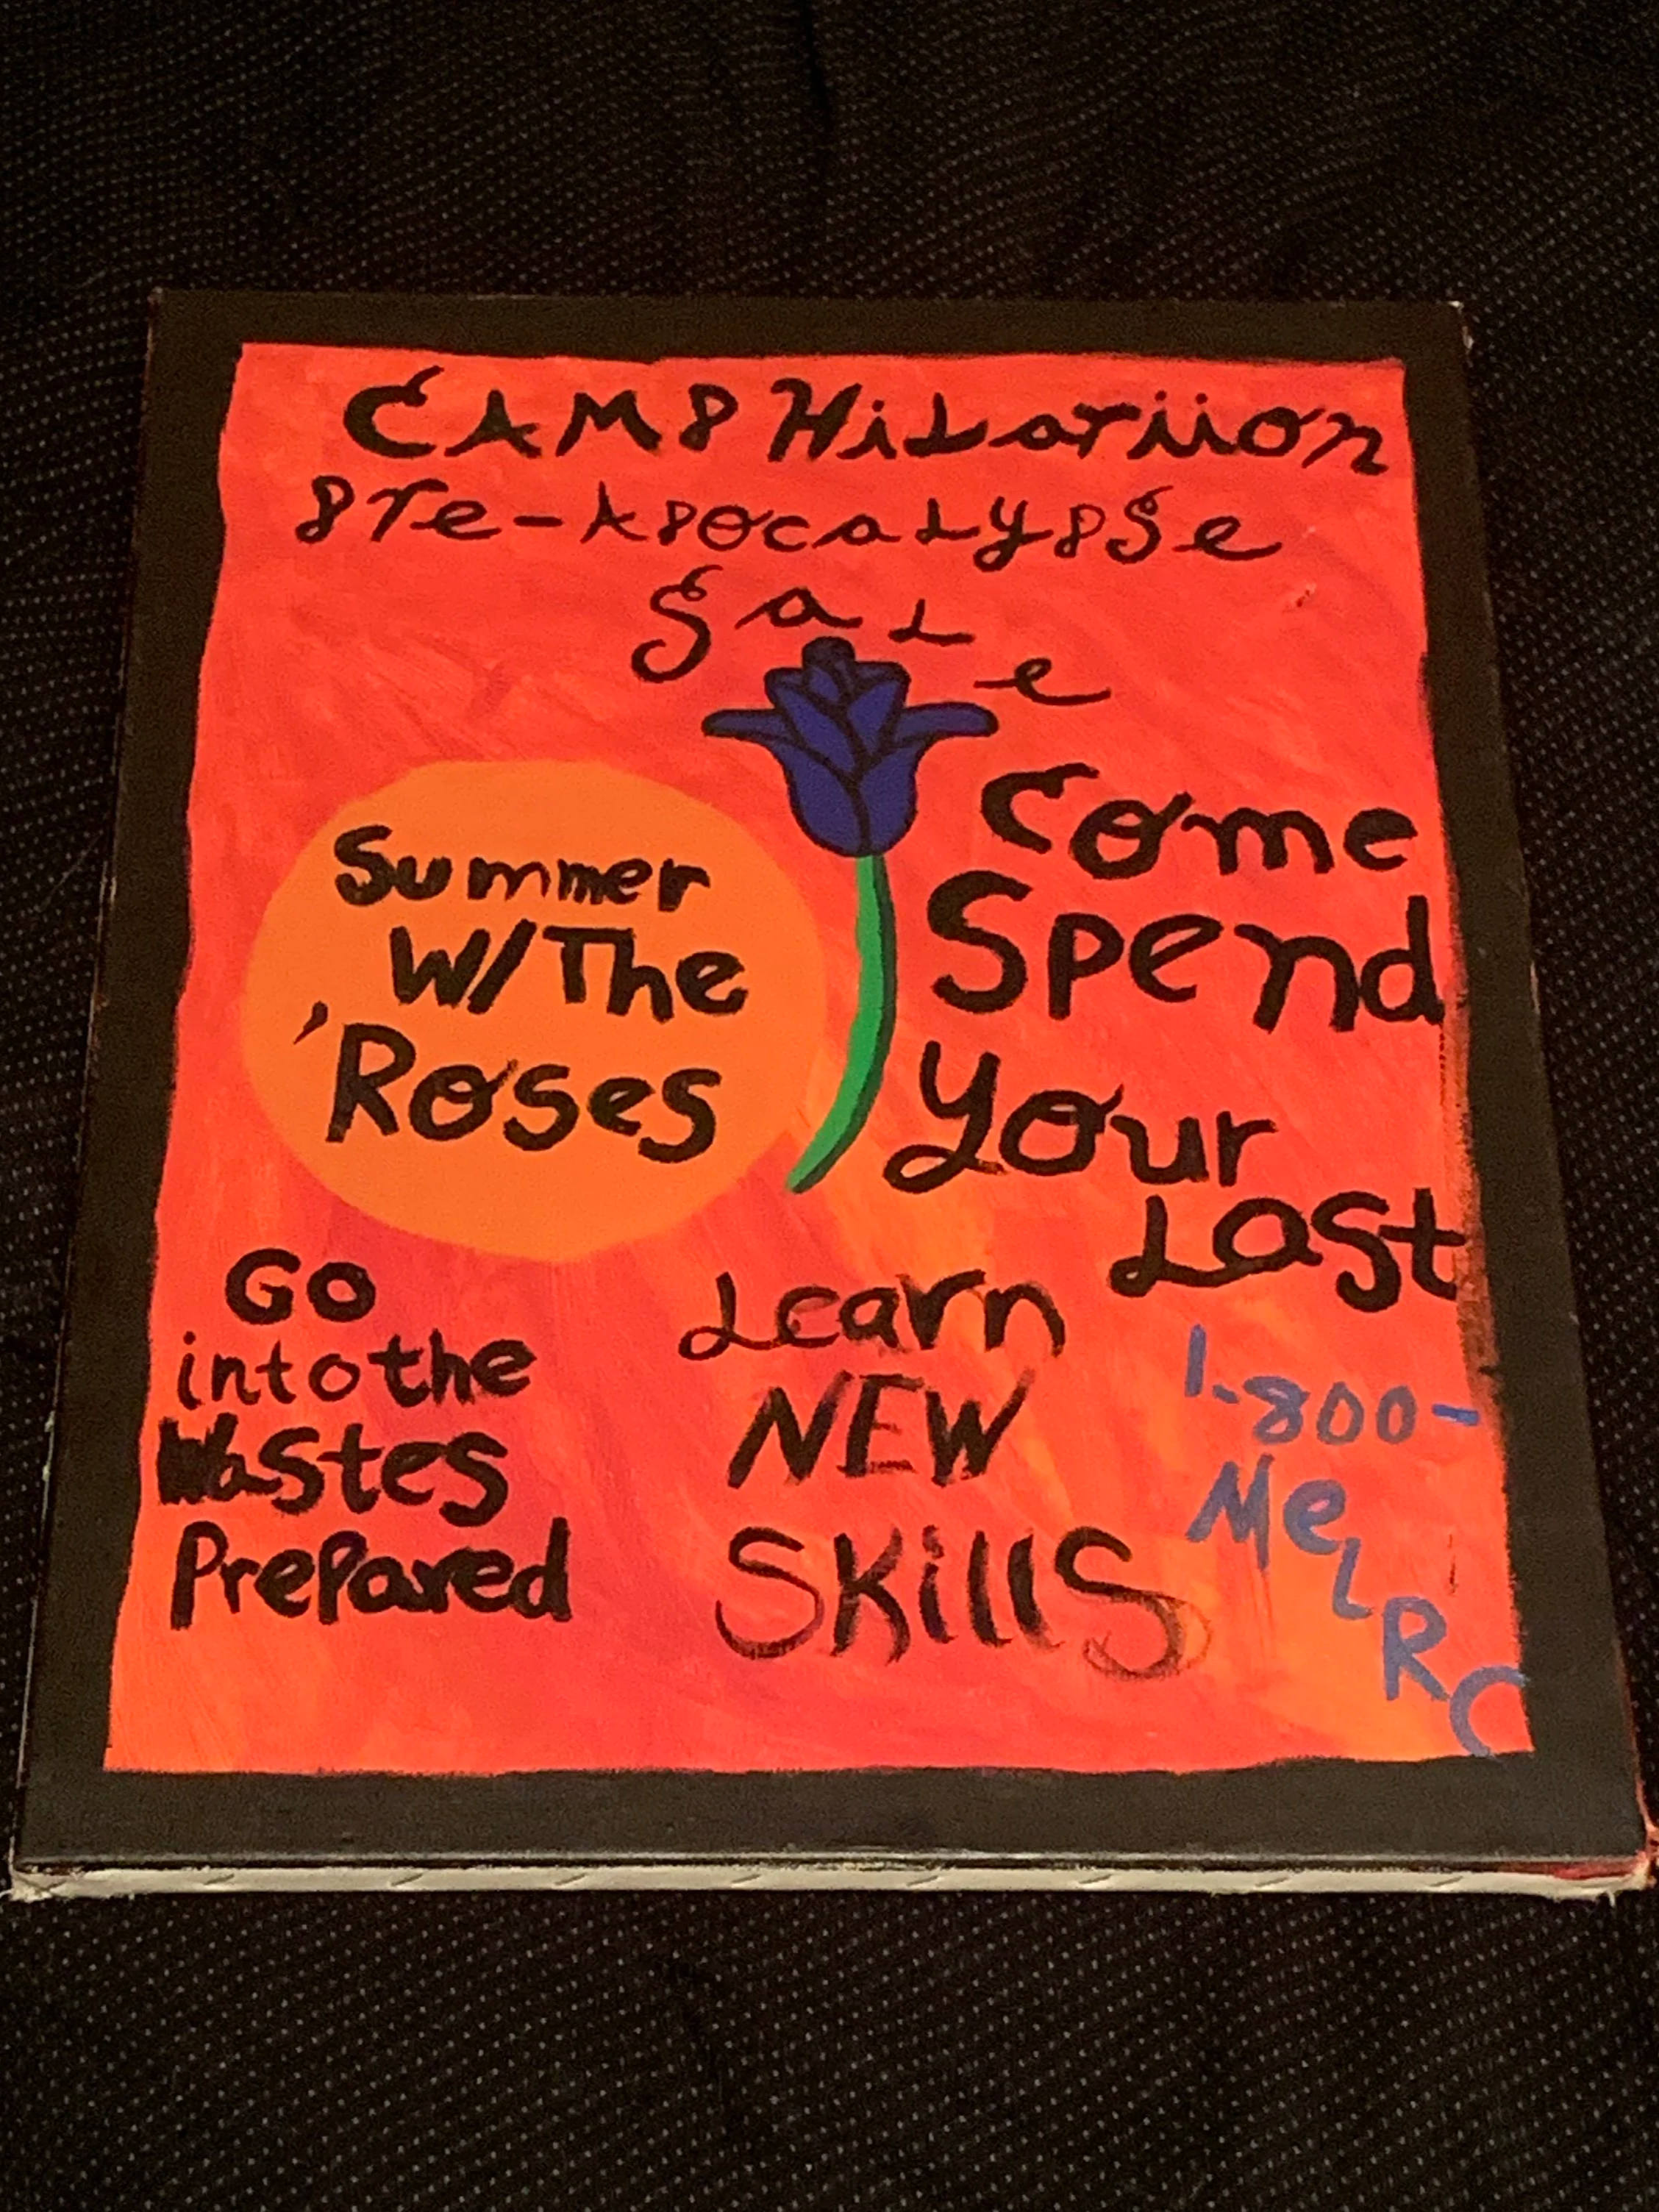 CAMP Hilariion
Pre-Apocalypse
Sale
Summer
W/The
'Roses
Come
Spend
Your
Last
Go
into the
Wastes
Prepared
Learn
NEW
SKills
1-800-
MeLRC